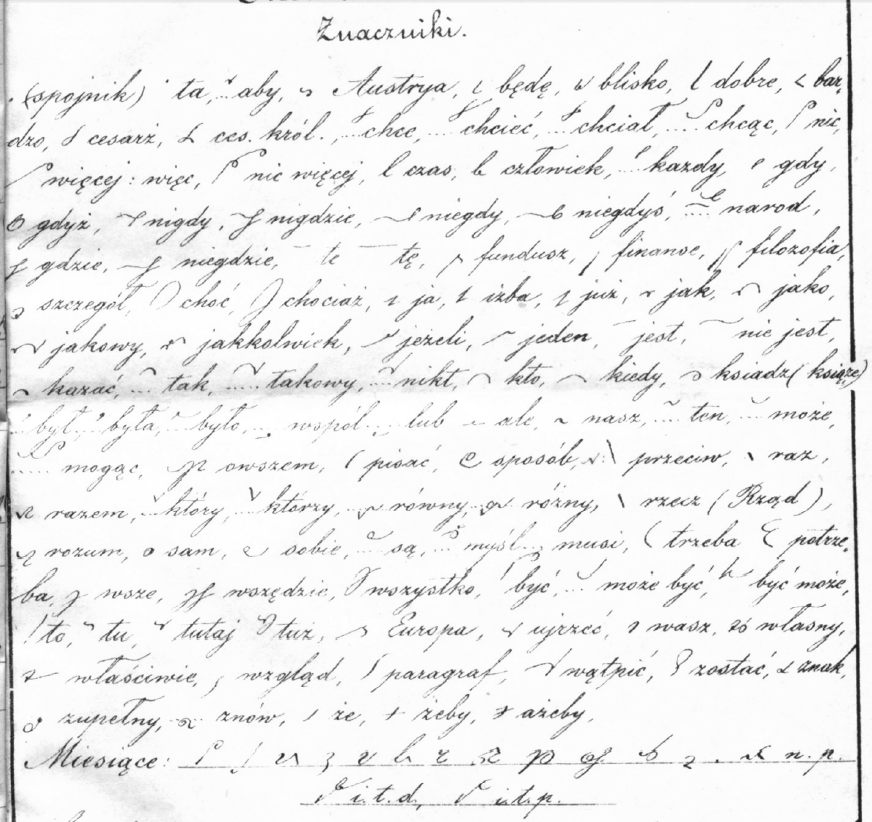 Znaczniki.
(spojnik) ta, aby, Austrya, będę, blisko, dobrze, bar-
dzo, cesarz, ces. król., chce, chcieć, chciał, chcąc, nic,
więcej: więc, nic więcej, czas, człowiek, każdy, gdy,
gdyż, nigdy, nigdzie, niegdy, niegdyś, narod,
gdzie, niegdzie, te tę, fundusz, finanse, filozofia,
szczegół, choć, chociaż, ja, izba, już, jak, jako,
jakowy, jakkolwiek, jeżeli, jeden, jest, nie jest,
kazać, tak, takowy, nikt, kto, kiedy, ksiadz (książe)
był, była, było, współ lub ale, nasz, ten, może,
mogąc, owszem, pisać, sposób, przeciw, raz,
razem, który, którzy, równy, różny, rzecz (Rząd),
rozum, sam, sobie, są, myśl, musi, (trzeba potrze-
ba, wsze, wszędzie, wszystko, być, może być, być może,
to, tu, tutaj tuż, Europa, ujrzeć, wasz, własny,
właściwie, wzgląd, paragraf, wątpić, zostać, znak,
zupełny, znów, że, żeby, ażeby,
Miesiące: n. p.
i. t. d, i. t. p.